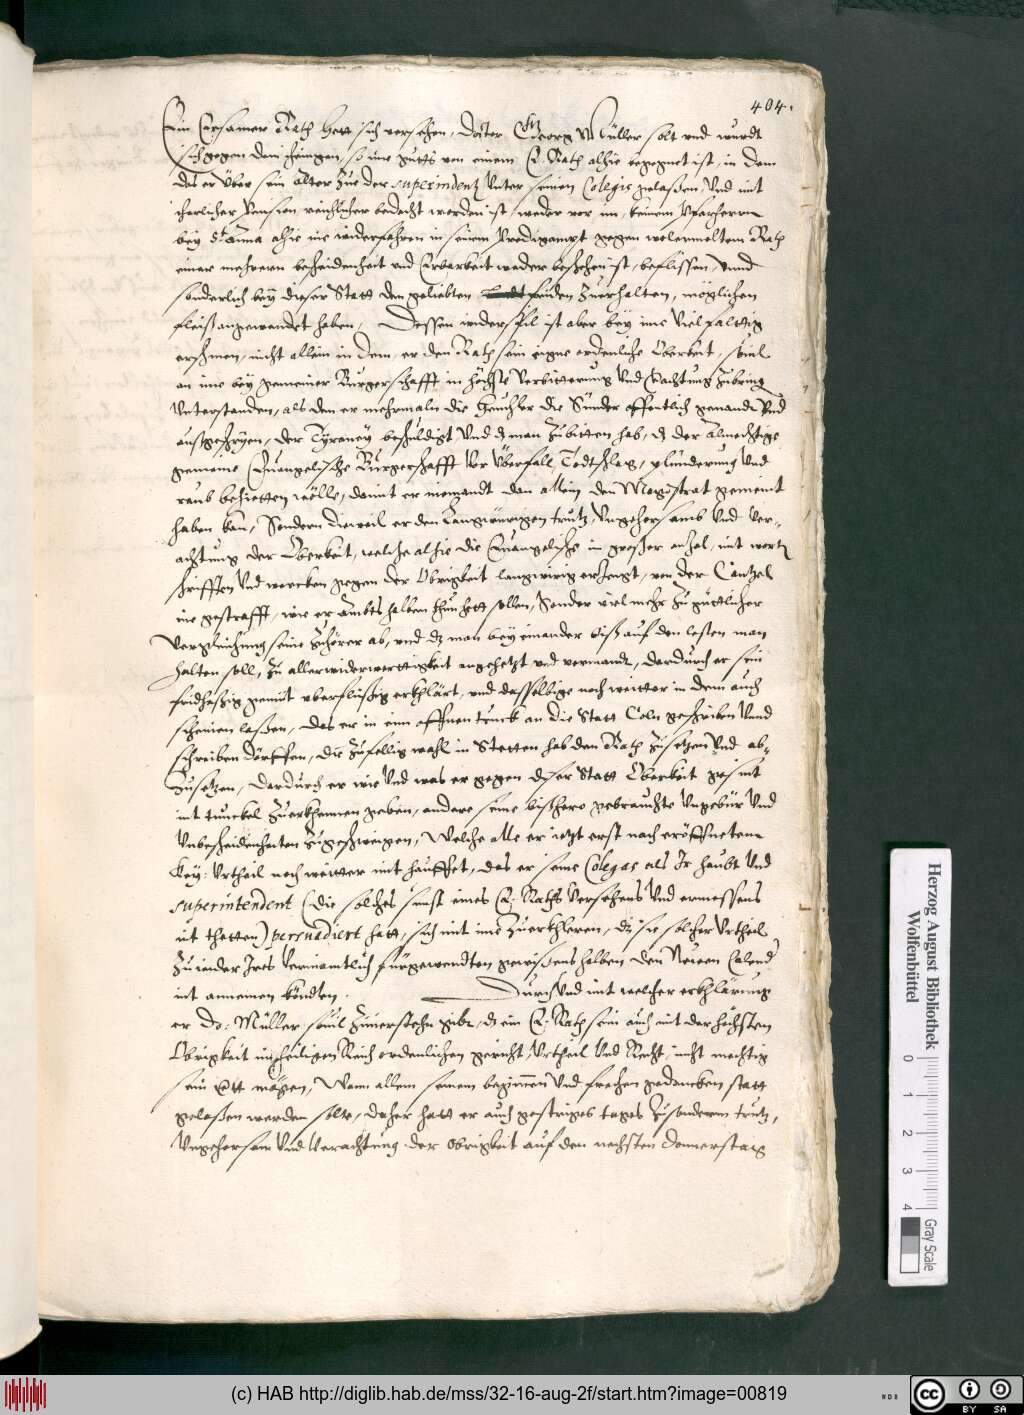 404.
Ein Ersamer Rath hett sich versehen, doctor Georg Müller solt und wurdt
sich gegen dem jhenigen, so ime guets von einem E. Rath alhie begegnet ist, in dem
das er über sein alter zue der superindentz unter seinen Colegis gelaßen, und mit
iherlicher Pension reichlicher bedacht worden ist, weder vor im, keinem Pfarherrn
bey St. Anna alhie nie widerfahren in seinem Predigampt gegen wolermeltem Rath
einer mehrern bescheidenheit und Erbarkeit weder beschehen ist, beflissen, unnd
sonderlich bey dieser Statt den geliebten friden zuerhalten, möglichen
fleiß angewendet haben, Dessen widerspil ist aber bey ime vielfalttig
erschinen, nicht allein in dem, er den Rath sein eigne ordenliche Oberkeit, sovil
an ime bey gemeiner Burgerschafft in höchste verbitterung und Verachtung zubring
unterstanden, als den er mehrmaln die heuchler die Sünder offentlich genandt und
außgeschryen, der Tyraney beschuldigt, und dz man zubitten hab, dz der Almechtige
gemeine Evangelische Burgerschafft vor überfall, Todtschlag, plünderung und
raub behietten wölle, damit er niemandt dan allein den Magistrat gemeint
haben kan, Sondern dieweil er den langwürigen trutz, ungehorsamb und ver-
achtung der Oberkeit, welche alhie die Evangelische in großer anzal, mit wort
schrifften und wercken gegen der Obrigkeit langwirig erzeigt, von der Cantzel
nie gestrafft, wie er Ambts halben thun hett sollen, Sonder viel mehr zu güttlicher
vergleichung seine zuhörer ab, und dz man bey einander biß auf den lesten man
halten soll, zu aller widerwerttigkeit angehetzt und vermandt, dardurch er sein
fridheßig gemüt überflüßig erkhlärt, und dasselbige noch weitter in dem auch
scheinen laßen, das er in eim offnen truck an die Statt Coln geschriben unnd
schreiben dörffen, die zufellig wahl in Stetten hab den Rath zusetzen und ab-
zusetzen, Dardurch er wie und was er gegen diser Statt Oberkeit gesint
nit tunckel zuerkhennen geben, andere seine bißhero gebrauchte ungebür und
unbescheidenheiten zugeschweigen, Welche alle er ietzt erst nach eröffnetem
Key: urtheil noch weitter mit hauffet, das er seine Colegas als Ir haubt und
superintendent (die solches sunst eines E. Raths versehens und ermessens
nit thetten) persuadiert hatt, sich mit ime zuerkhleren, dz sie solcher urtheil
zuwider Ires vermaintlich fürgewendten gewißens halben den Neuen Calend
nit annemen köndten. Durch und mit welcher erkhlärung
er Do: Müller sovil zuverstehn gibt, dz ein E. Rath sein auch mit der höchsten
Obrigkeit im heiligen Reich ordenlichen gericht, urtheil und Recht, nicht mechtig
sein mögen, Wann allein seinem beginnen und frechen gedancken statt
gelaßen werden solte, daher hatt er auch gestriges tages zu sonderm trutz,
ungehorsam und Verachtung der Obrigkeit auf den nechsten Donnerstaig
Herzog August Bibliothek
Wolfenbüttel
0 1 2 3 4
Gray Scale
(c) HAB http://diglib.hab.de/mss/32-16-aug-2f/start.htm?image=00819
WDB
cc BY SA